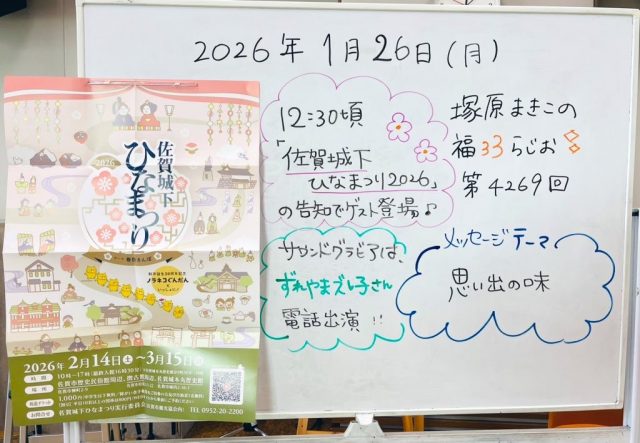 2026年1月26日(月)
12:30頃
「佐賀城下
ひなまつり2026」
の告知でゲスト登場♪
塚原まきこの
福33らじお
第4269回
サウンドグラビアは、
ずれやまズレ子さん
電話出演!!
メッセージテーマ
思い出の味
2026
佐賀城下
ひなまつり
ノラネコぐんだん
2026年2月14日(土)~3月15日(日)
時間
10時~17時
場所
佐賀市歴史民俗館周辺、
お問合せ
佐賀城下ひなまつり実行委員会
TEL 0952-20-2200